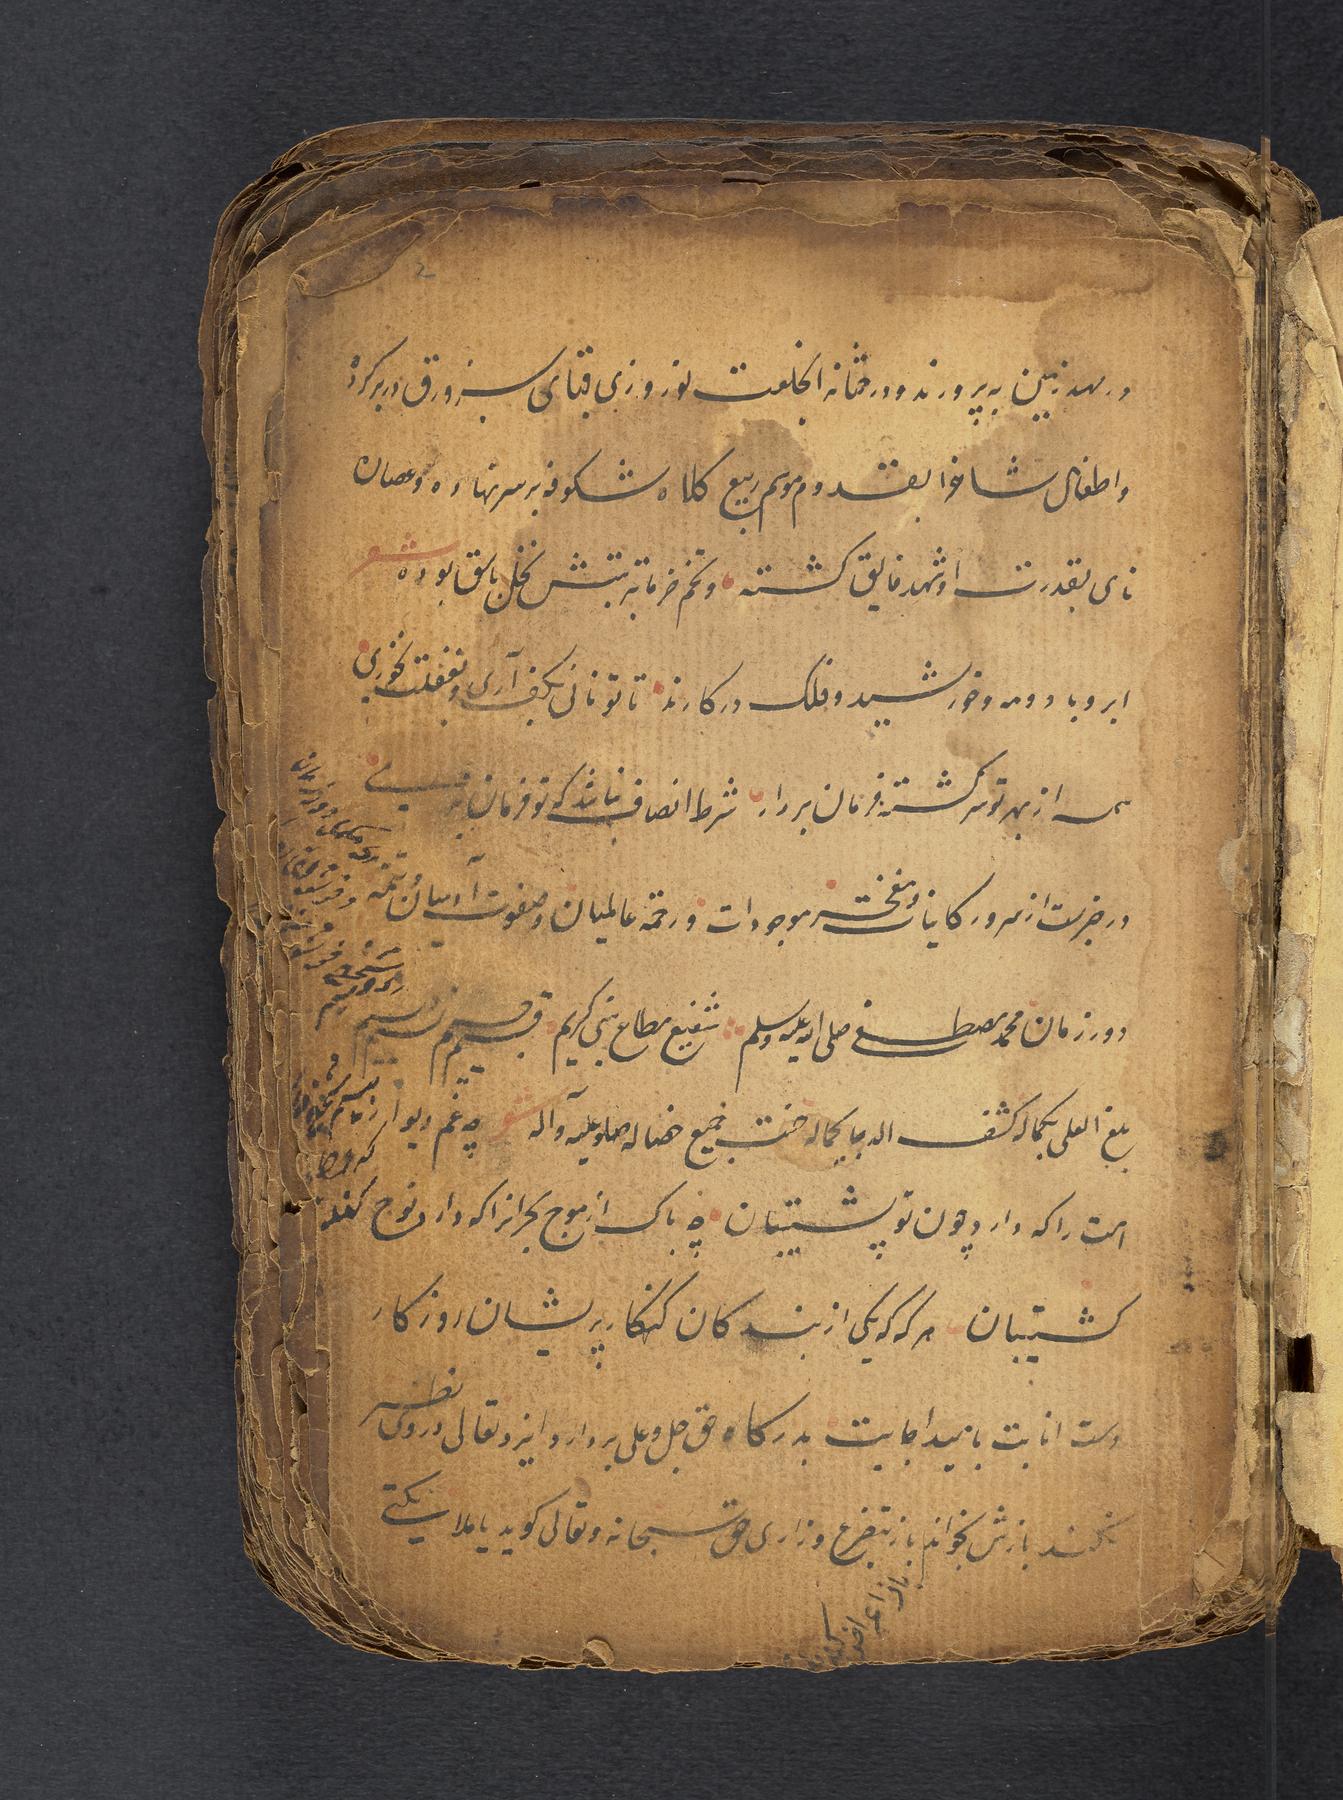 در مهد زمین به پرورند و درختانرا بخلعت نوروزی قبای سبز ورق در بر کرده
و اطفال شاخرا بقدوم موسم ربیع کلاه شکوفه بر سر نهاده و عصاره
نای بقدرت او شهد فایق کشته و تخم خرما بتربیتش نخل باسق بوده شعر
ابر و باد و مه و خورشید و فلک در کارند تا تو نانی بکف آری و بغفلت نخوری
همه از بهر تو سرکشته و فرمان بردار شرط انصاف نباشد که تو فرمان نبری
در خبرست از سرور کاینات و مفخر موجودات و رحمة عالمیان و صفوت آدمیان و تتمه
دور زمان محمد مصطفی صلی الله علیه وسلم شفیع مطاع نبی کریم قسیم جسیم نسیم وسیم
بلغ العلی بکماله کشف الدجا بجماله حسنت جمیع خصاله صلو علیه و آله شعر چه غم دیوار
امت را که دارد چون تو پشتیبان چه باک از موج بحر انرا که دارد نوح
کشتیبان هر که که یکی از بندکان کنهکار پریشان روزکار
دست انابت بامید اجابت بدرکاه حق جل و علی بردارد ایزد تعالی در وی نظر
نکند بازش بخواند باز بتضرع و زاری حق سبحانه و تعالی کوید یا ملائیکتی